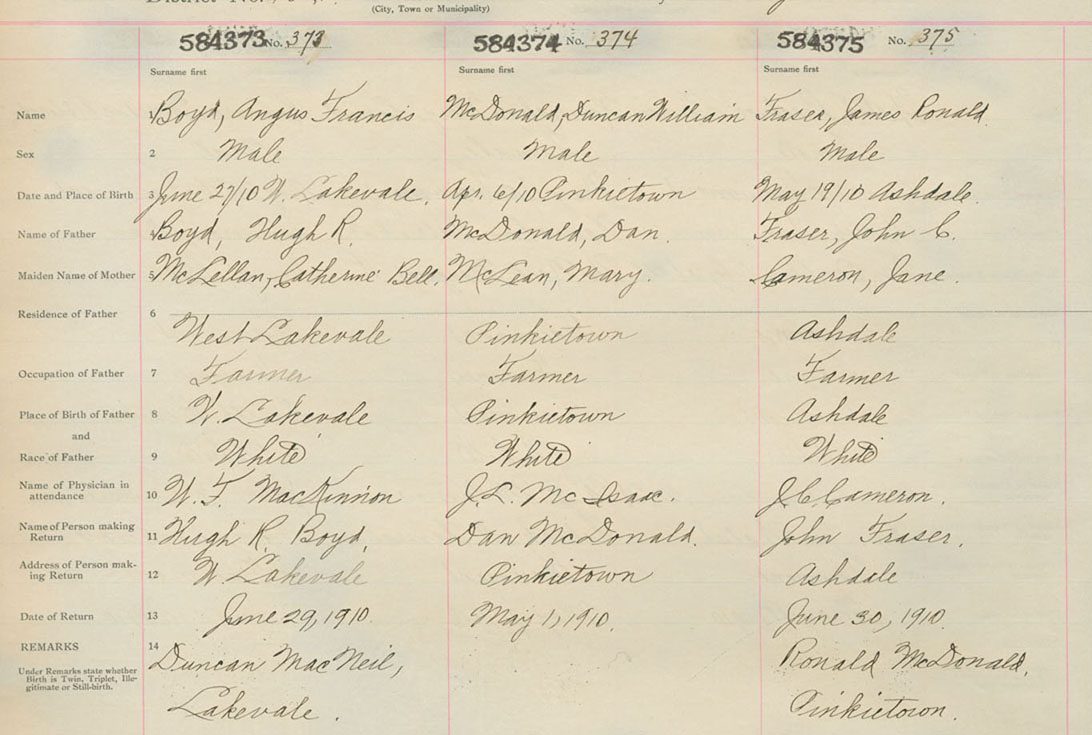 District No.
(City, Town or Municipality)
584373 No. 373 584374 No. 374 584375 No. 375
Surname first Surname first Surname first
Name 1 Boyd, Angus Francis McDonald, Duncan William Fraser, James Ronald.
Sex 2 Male Male Male
Date and Place of Birth 3 June 27/10 W. Lakevale. Apr. 6/10 Pinkietown May 19/10 Ashdale.
Name of Father 4 Boyd, Hugh R. McDonald, Dan. Fraser, John C.
Maiden Name of Mother 5 McLellan, Catherine Bell. McLean, Mary. Cameron, Jane.
Residence of Father 6 West Lakevale Pinkietown Ashdale
Occupation of Father 7 Farmer Farmer Farmer
Place of Birth of Father 8 W. Lakevale Pinkietown Ashdale
and
Race of Father 9 White White White
Name of Physician in
attendance 10 W. F. MacKinnon J. L. McIsaac. J. C. Cameron.
Name of Person making
Return 11 Hugh R. Boyd, Dan McDonald. John Fraser.
Address of Person mak-
ing Return 12 W Lakevale Pinkietown Ashdale
Date of Return 13 June 29, 1910. May 1, 1910. June 30, 1910.
REMARKS 14 Duncan MacNeil, Ronald McDonald,
Under Remarks state whether
Birth is Twin, Triplet, Ille-
gitimate or Still-birth.
Lakevale. Pinkietown.